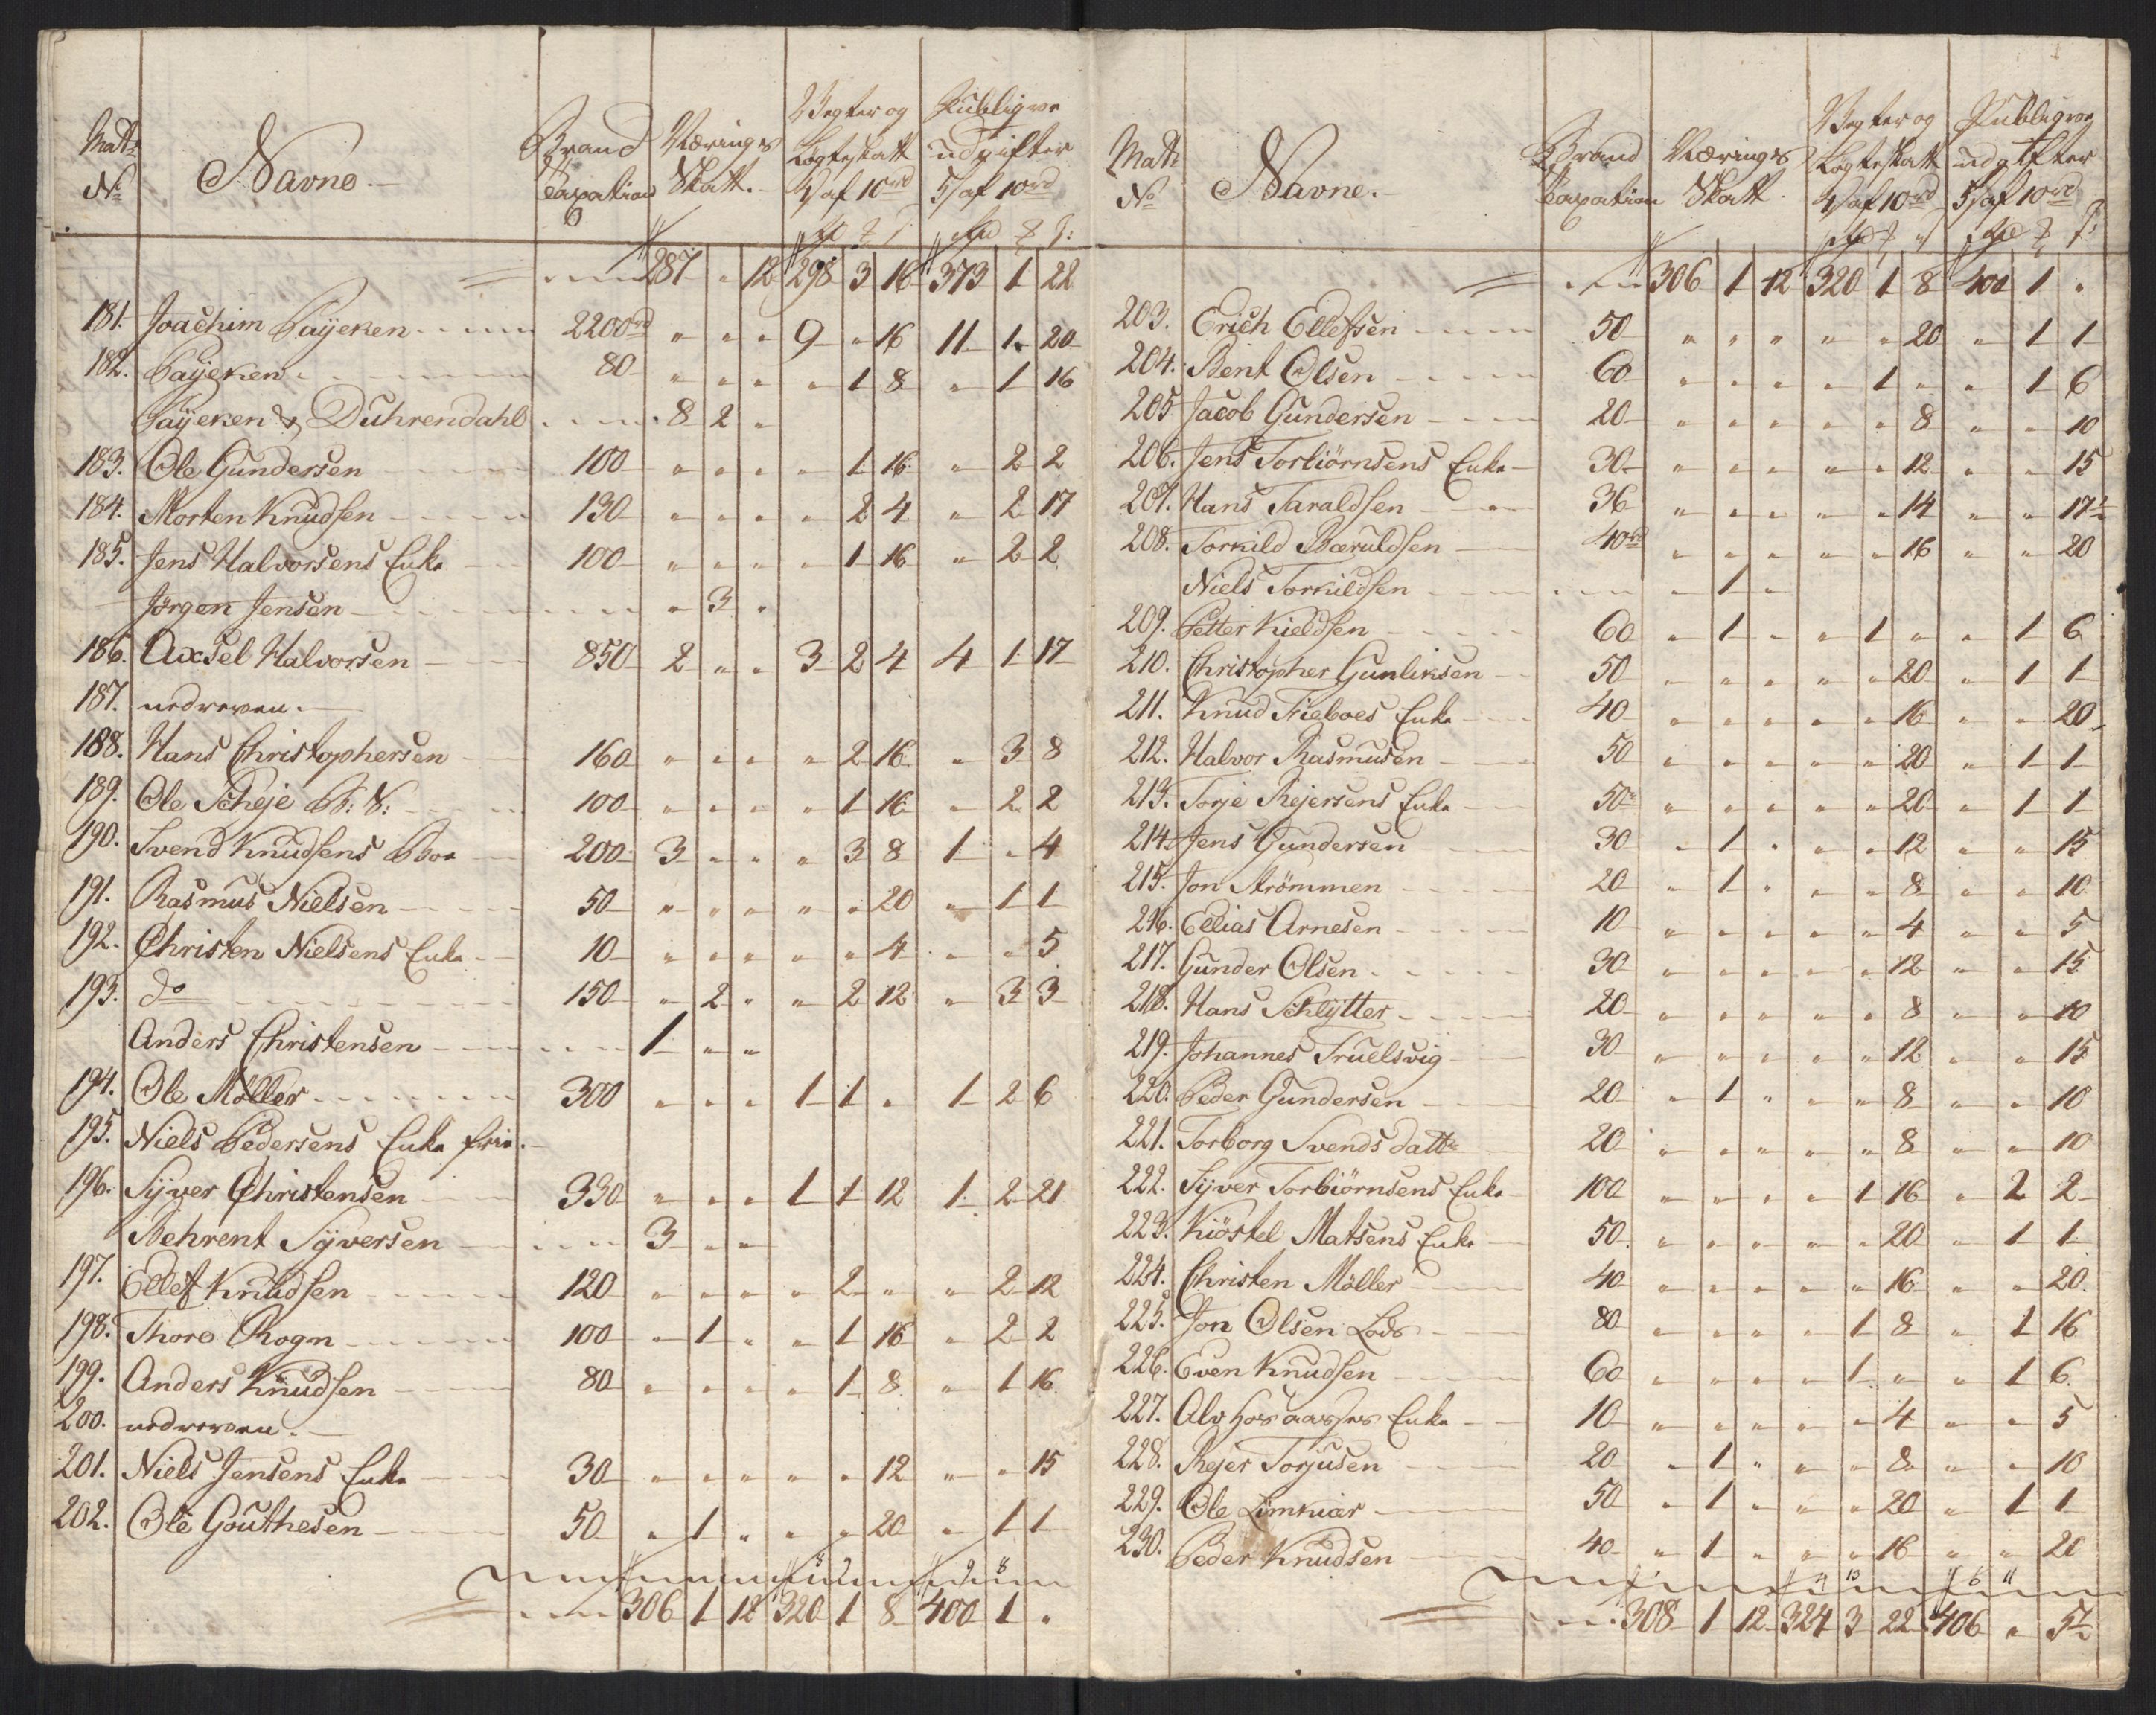 Mat: No | Navne. | Brand Taxation | Nærings Skatt. | Vegter og Løgteskatt 4/ af 10rd | Publiqve udgifter 5/ af 10rd
287 " 12 | 298 3 16 | 373 1 22
181. Joachim Payeken 2200rd " " " 9 " 16 11 1 20
182. Payeken 80 " " " " 1 8 " 1 16
Payeken & Duhrendahl 8 2 "
183. Ole Gundersen 100 " " " " 1 16 " 2 2
184. Morten Knudsen 130 " " " " 2 4 " 2 17
185. Jens Halvorsens Enke 100 " " " " 1 16 " 2 2
Jørgen Jensen " 3 "
186. Axsel Halvorsen 850 2 " " 3 2 4 4 1 17
187. nedreven.
188. Hans Christophersen 160 " " " " 2 16 " 3 8
189. Ole Scheje 100 " " " " 1 16 " 2 2
190. Svend Knudsens Boe 200 3 " " " 3 8 1 " 4
191. Rasmus Nielsen 50 " " " " " 20 " 1 1
192. Christen Nielsens Enke 10 " " " " " 4 " " 5
193. do 150 " 2 " " 2 12 " 3 3
Anders Christensen 1 " "
194. Ole Møller 300 " " " 1 1 " 1 2 6
195. Niels Pedersens Enke frie.
196. Syver Christensen 330 " " " 1 1 12 1 2 21
Behrent Syversen 3 " "
197. Ellef Knudsen 120 " " " " 2 " " 2 12
198. Thore Rogn 100 " 1 " " 1 16 " 2 2
199. Anders Knudsen 80 " " " " 1 8 " 1 16
200. nedreven.
201. Niels Jensens Enke 30 " " " " " 12 " " 15
202. Ole Gouthesen 50 " 1 " " " 20 " 1 1
306 1 12 | 320 1 8 | 400 1 "
Mat: No | Navne. | Brand Taxation | Nærings Skatt. | Vegter og Løgteskatt 4/ af 10rd | Publiqve udgifter 5/ af 10rd
306 1 12 | 320 1 8 | 400 1 "
203. Erich Ellefsen 50 " " " " " 20 " 1 1
204. Bent Olsen 60 " " " " 1 " " 1 6
205 Jacob Gundersen 20 " " " " " 8 " " 10
206. Jens Torbiørnsens Enke 30 " " " " " 12 " " 15
207. Hans Taraldsen 36 " " " " " 14 " " 17½
208. Torkild Bæruldsen 40rd " " " " " 16 " " 20
Niels Torkildsen " 1 "
209. Petter Kieldsen 60 " 1 " " 1 " " 1 6
210. Christopher Gunliksen 50 " " " " " 20 " 1 1
211. Knud Frieboes Enke 40 " " " " " 16 " " 20
212. Halvor Rasmusen 50 " " " " " 20 " 1 1
213. Torje Rejersens Enke 50 " " " " " 20 " 1 1
214. Jens Gundersen 30 " 1 " " " 12 " " 15
215. Jon Strømmen 20 " 1 " " " 8 " " 10
216. Ellias Arnesen 10 " " " " " 4 " " 5
217. Gunder Olsen 30 " " " " " 12 " " 15
218. Hans Schlytter 20 " " " " " 8 " " 10
219. Johannes Truelsvig 30 " " " " " 12 " " 15
220. Peder Gundersen 20 " 1 " " " 8 " " 10
221. Torborg Svends datt: 20 " " " " " 8 " " 10
222. Syver Torbiørnsens Enke 100 " " " " 1 16 " 2 2
223. Kiøstel Matsens Enke 50 " " " " " 20 " 1 1
224. Christen Møller 40 " " " " " 16 " " 20
225. Jon Olsen Lods 80 " " " " 1 8 " 1 16
226. Even Knudsen 60 " " " " 1 " " 1 6
227. Alv Enke 10 " " " " " 4 " " 5
228. Rejer Torjusen 20 " 1 " " " 8 " " 10
229. Ole Limkiær 50 " 1 " " " 20 " 1 1
230. Peder Knudsen 40 " 1 " " " 16 " " 20
308 1 12 | 324 3 22 | 406 " 5½